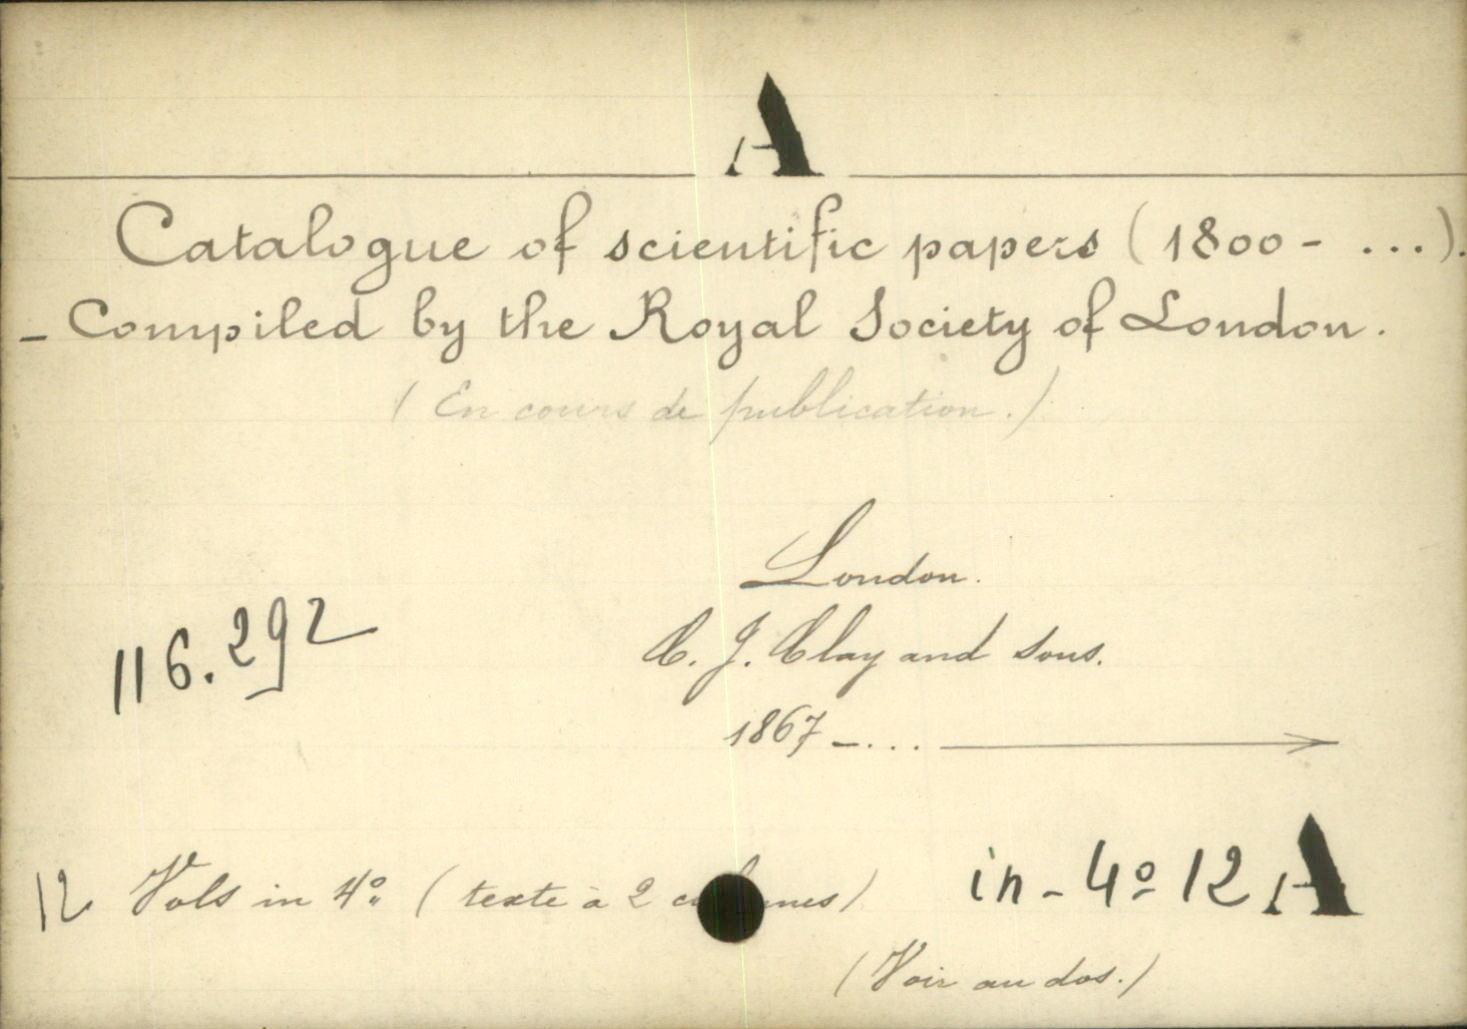 A
Catalogue of scientific papers (1800 - ...).
- Compiled by the Royal Society of London.
(En cours de publication.)
London.
C. J. Clay and Sons.
116.292
1867 - ...
12 Vols in 4º. (texte à 2
in - 4º 12 A
(Voir au dos.)